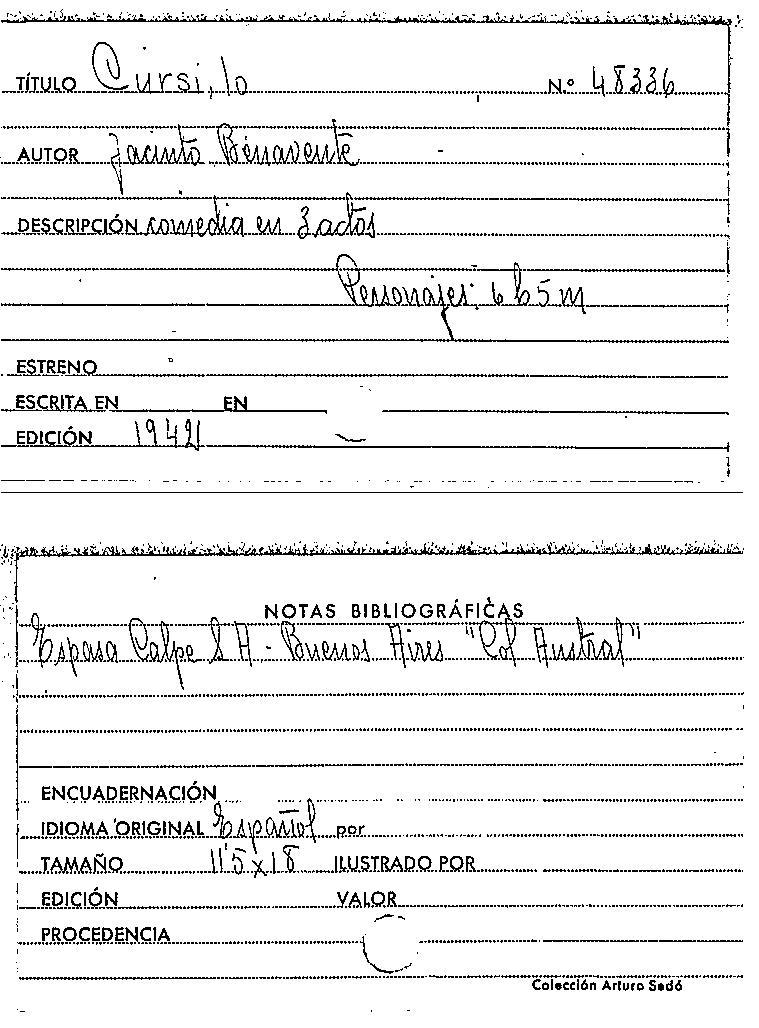 TÍTULO Cursi, lo N.º 48336
AUTOR Jacinto Benavente
DESCRIPCIÓN comedia en 3 actos
Personajes: 6 h 5 m
ESTRENO
ESCRITA EN EN
EDICIÓN 1942
NOTAS BIBLIOGRÁFICAS
Espasa Calpe S A - Buenos Aires "Col Austral"
ENCUADERNACIÓN
IDIOMA ORIGINAL Español por
TAMAÑO 11'5x18 ILUSTRADO POR
EDICIÓN VALOR
PROCEDENCIA
Colección Arturo Sedó